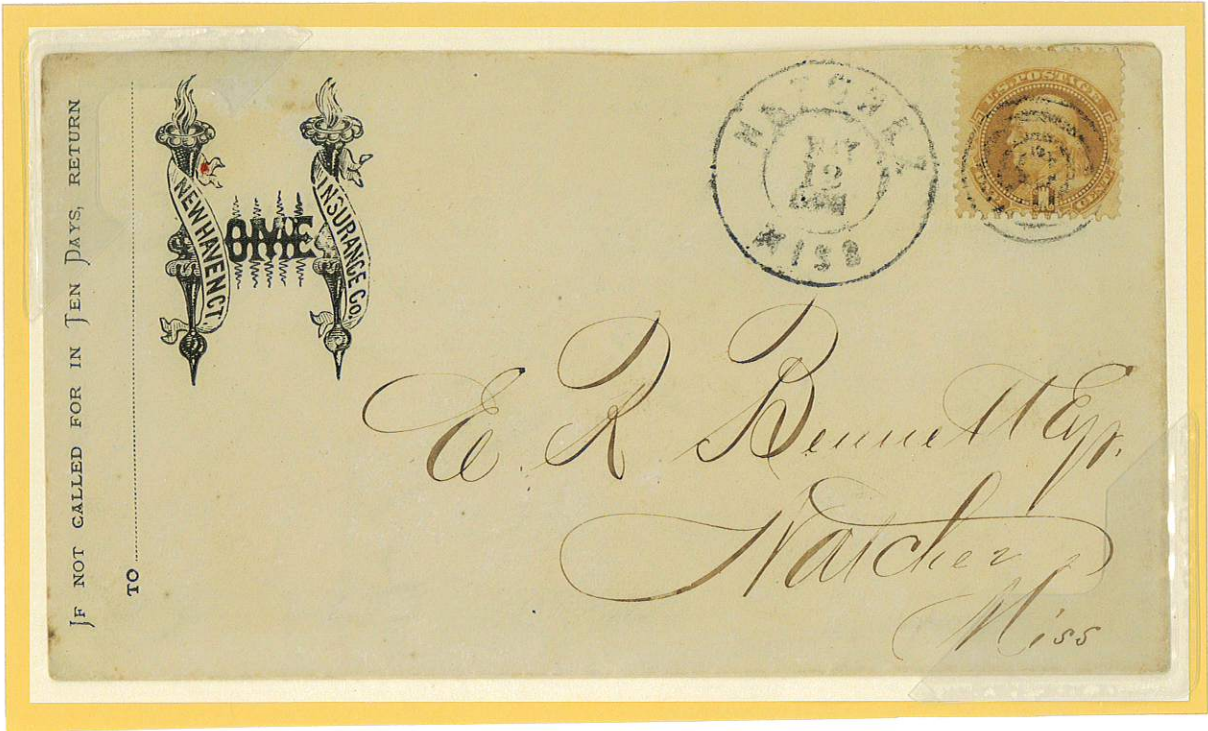 IF NOT CALLED FOR IN TEN DAYS, RETURN
TO
NEW HAVEN CT.
OME
INSURANCE CO.
NATCHEZ
12
MISS
U.S. POSTAGE
ONE
E. R. Bennett Esq.
Natchez
Miss